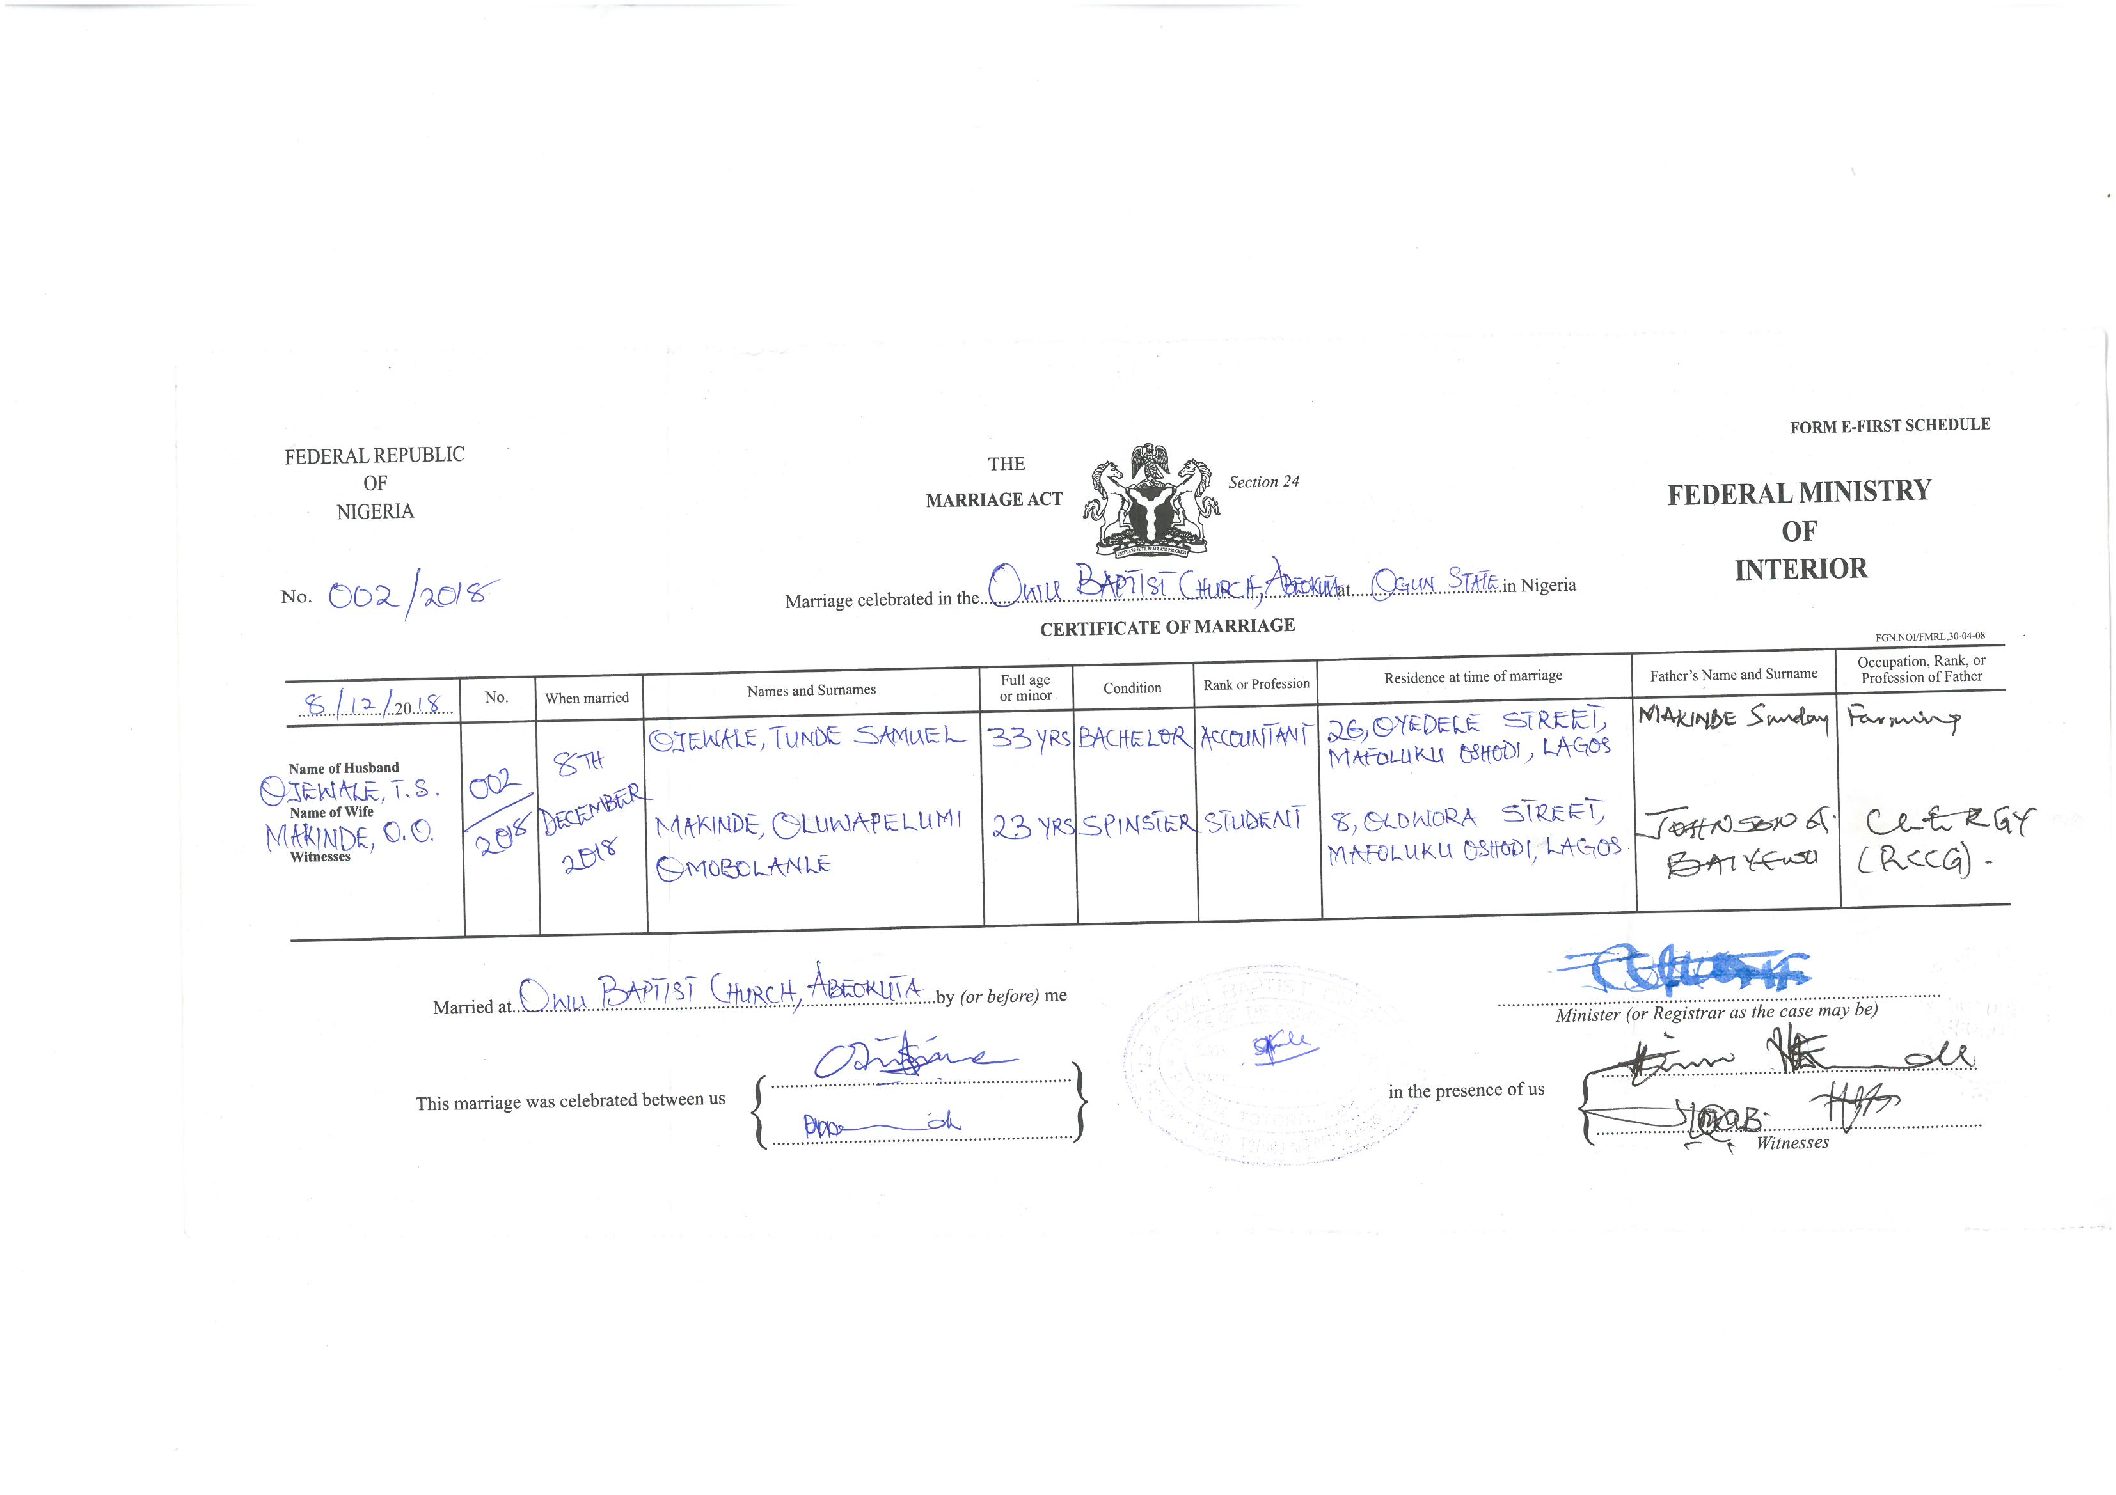 FORM E-FIRST SCHEDULE
FEDERAL REPUBLIC
OF
NIGERIA
THE
MARRIAGE ACT
Section 24
FEDERAL MINISTRY
OF
INTERIOR
No. 002/2018
Marriage celebrated in the OWU BAPTIST CHURCH, ABEOKUTA at OGUN STATE in Nigeria
CERTIFICATE OF MARRIAGE
FGN.NOI/FMRL,30-04-08
8/12/2018
No.
When married
Names and Surnames
Full age
or minor
Condition
Rank or Profession
Residence at time of marriage
Father's Name and Surname
Occupation, Rank, or
Profession of Father
Name of Husband
OJEWALE, T.S.
Name of Wife
MAKINDE, O.O.
Witnesses
002/2018
8TH
DECEMBER
2018
OJEWALE, TUNDE SAMUEL
33 YRS
BACHELOR
ACCOUNTANT
26, OYEDELE STREET,
MAFOLUKU OSHODI, LAGOS
MAKINDE Sunday
Farming
MAKINDE, OLUWAPELUMI
OMOBOLANLE
23 YRS
SPINSTER
STUDENT
8, OLOWORA STREET,
MAFOLUKU OSHODI, LAGOS
JOHNSON
CLERGY
(RCCG).
Married at OWU BAPTIST CHURCH, ABEOKUTA by (or before) me
Minister (or Registrar as the case may be)
This marriage was celebrated between us
in the presence of us
Witnesses